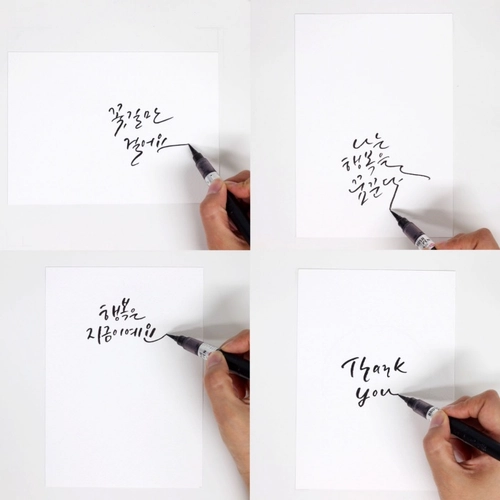 꽃길만
걸어요
나는
행복을
꿈꾼다
행복은
지금이에요
Thank
you